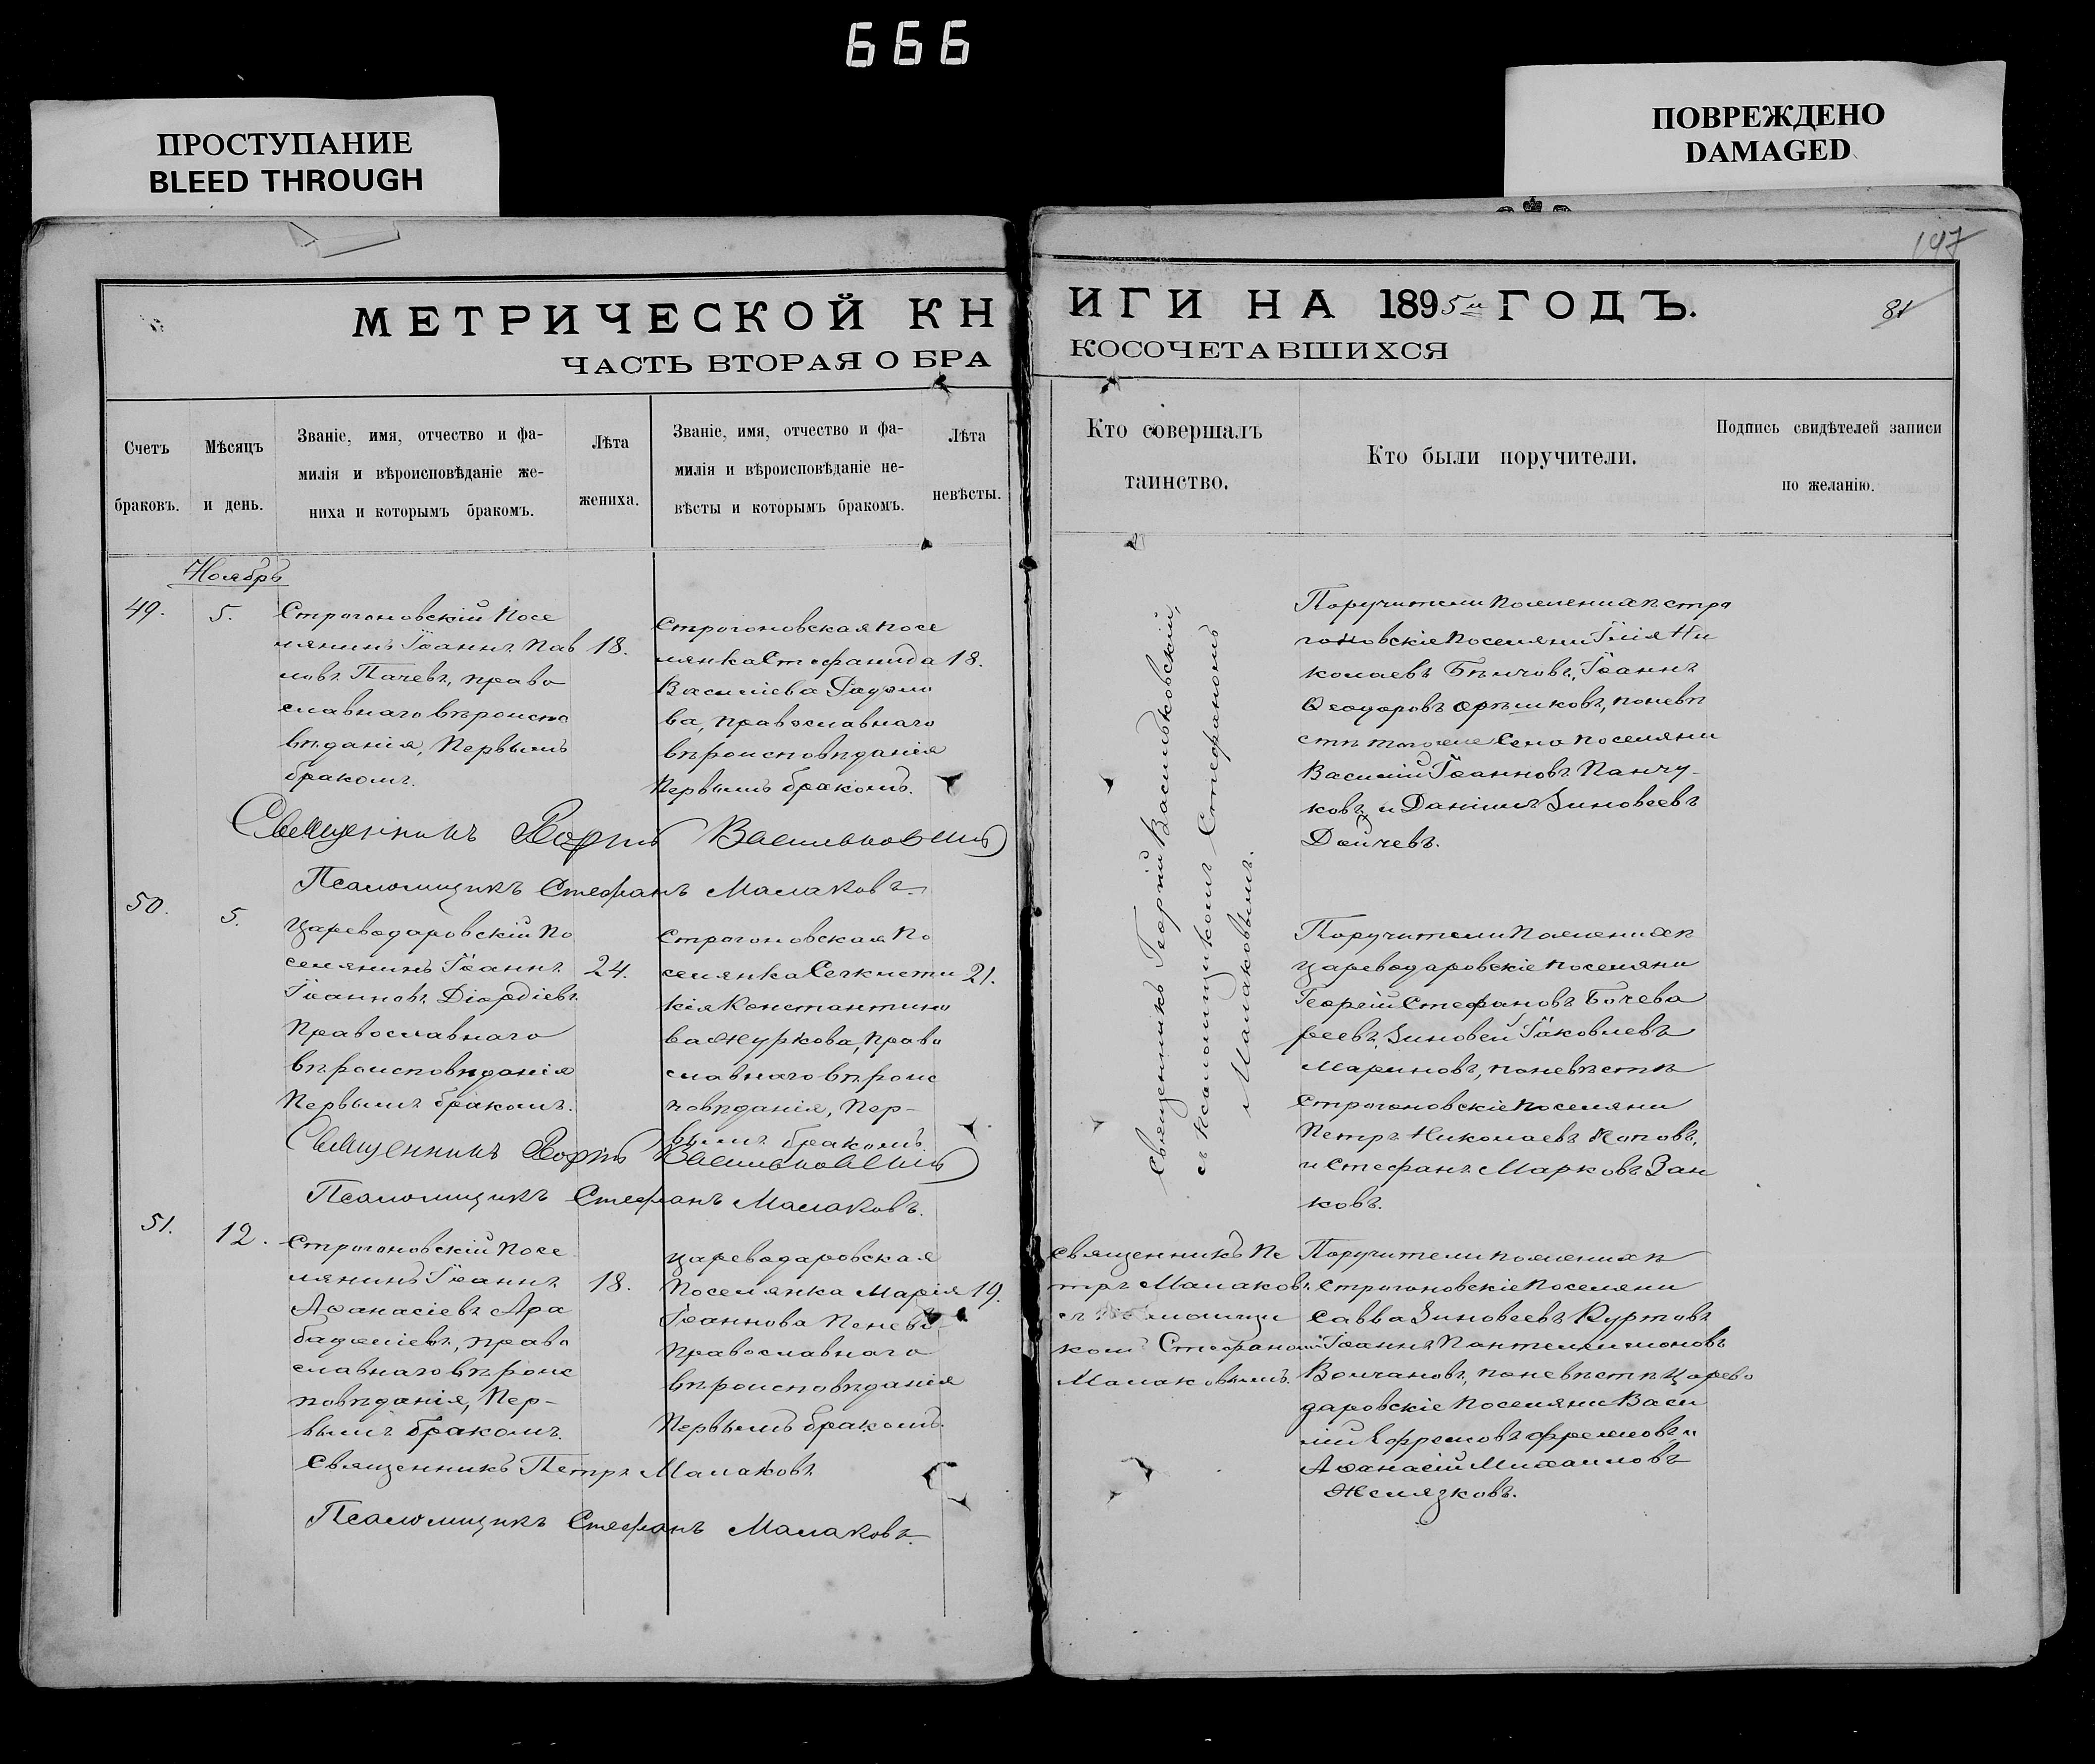 666
ПРОСТУПАНИЕ
BLEED THROUGH
ПОВРЕЖДЕНО
DAMAGED
197
МЕТРИЧЕСКОЙ КНИГИ НА 1895й ГОДЪ.
81
ЧАСТЬ ВТОРАЯ О БРАКОСОЧЕТАВШИХСЯ
Счетъ
браковъ.
Мѣсяцъ
и день.
Званіе, имя, отчество и фа-
милія и вѣроисповѣданіе же-
ниха и которымъ бракомъ.
Лѣта
жениха.
Званіе, имя, отчество и фа-
милія и вѣроисповѣданіе не-
вѣсты и которымъ бракомъ.
Лѣта
невѣсты.
Кто совершалъ
таинство.
Кто были поручители.
Подпись свидѣтелей записи
по желанію.
Ноябрь
49.
5.
Строгоновскій посе
лянинъ Іоаннъ Пав
ловъ Пачевъ, право
славнаго вѣроиспо
вѣданія, первымъ
бракомъ.
18.
Строгоновская посе
лянка Стефанида
Василіева
ва, православнаго
вѣроисповѣданія
первымъ бракомъ.
18.
Священникъ Георгій Васильковскій,
съ псаломщикомъ Стефаномъ
Малаковымъ.
Поручители по женихѣ стро
гоновскіе поселяни Илія Ни
колаевъ Бѣлчовъ, Іоаннъ
Ѳеодоровъ Орѣшковъ, по невѣ
стѣ того же села поселяни
Василій Іоанновъ Панчу-
ковъ и Даніилъ Зиновеевъ
Дойчевъ.
Священникъ Георгій Васильковскій
Псаломщикъ Стефанъ Малаковъ.
50.
5.
Цареводаровскій по
селянинъ Іоаннъ
Іоанновъ Діордіевъ
православнаго
вѣроисповѣданія
первымъ бракомъ.
24.
Строгоновская по
селянка
кія Константино
ва Журкова, право
славнаго вѣроис
повѣданія, пер-
вымъ бракомъ.
21.
Поручители по женихѣ
цареводаровскіе поселяни
Георгій Стефановъ Бочева
ровъ, Зиновей Іаковлевъ
Мариновъ, по невѣстѣ
строгоновскіе поселяни
Петръ Николаевъ Поповъ,
и Стефанъ Марковъ Зан
ковъ.
Священникъ Георгій Васильковскій
Псаломщикъ Стефанъ Малаковъ.
51.
12.
Строгоновскій посе
лянинъ Іоаннъ
Аѳанасіевъ Ара
баджіевъ, право
славнаго вѣроис
повѣданія, пер-
вымъ бракомъ.
18.
Цареводаровская
поселянка Марія
Іоаннова Пенева
православнаго
вѣроисповѣданія
первымъ бракомъ.
19.
Священникъ Пе
тръ Малаковъ
съ псаломщи
комъ Стефаномъ
Малаковымъ.
Поручители по женихѣ
строгоновскіе поселяни
Савва Зиновеевъ Куртовъ
Іоаннъ Пантелеимоновъ
Волчановъ, по невѣстѣ царево
даровскіе поселяни Васи
лій Ефремовъ Фремовъ и
Аѳанасій Михаиловъ
Желязковъ.
Священникъ Петръ Малаковъ
Псаломщикъ Стефанъ Малаковъ.